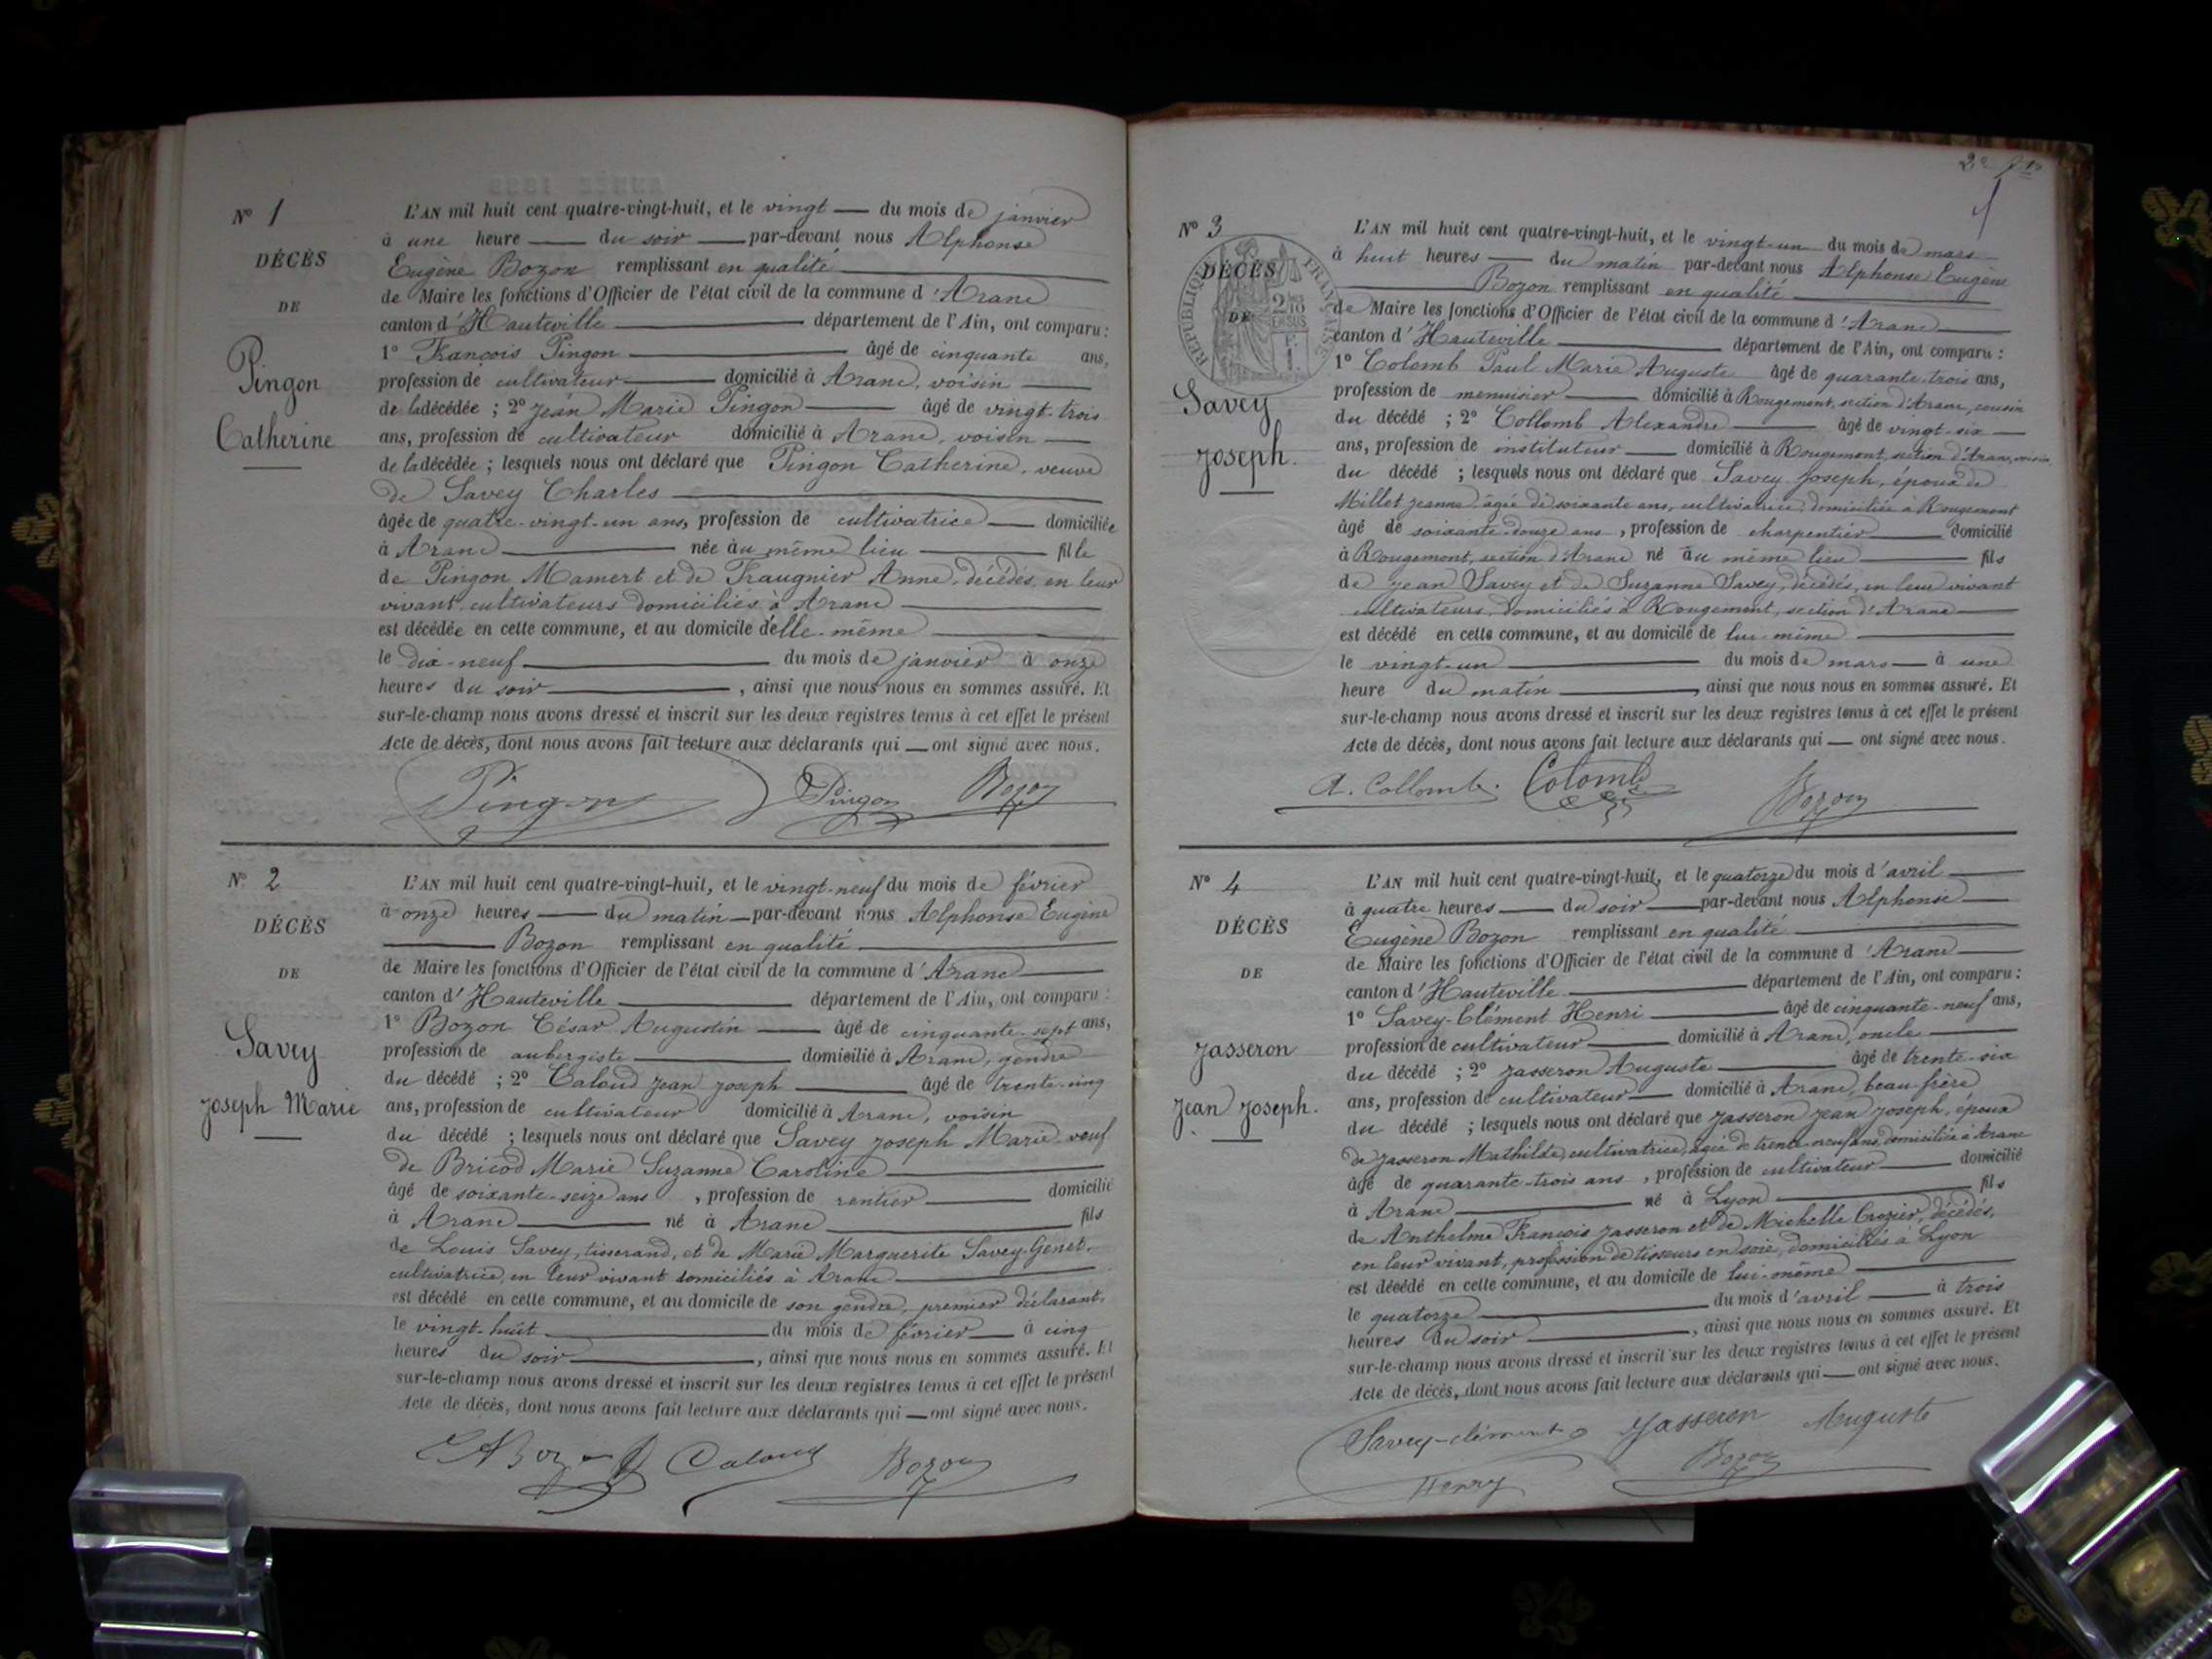 N° 1
DÉCÈS
DE
Pingon
Catherine
L'AN mil huit cent quatre-vingt-huit, et le vingt — du mois de janvier
à une heure — du soir — par-devant nous Alphonse
Eugène Bozon remplissant en qualité
de Maire les fonctions d'Officier de l'état civil de la commune d'Aranc
canton d'Hauteville — département de l'Ain, ont comparu :
1° François Pingon — âgé de cinquante ans,
profession de cultivateur — domicilié à Aranc, voisin —
de la décédée ; 2° Jean Marie Pingon — âgé de vingt-trois
ans, profession de cultivateur domicilié à Aranc, voisin —
de la décédée ; lesquels nous ont déclaré que Pingon Catherine, veuve
de Savey Charles —
âgée de quatre-vingt-un ans, profession de cultivatrice — domiciliée
à Aranc — née au même lieu — fille
de Pingon Mamert et de Fraugnier Anne, décédés, en leur
vivant cultivateurs domiciliés à Aranc —
est décédée en cette commune, et au domicile d'elle-même —
le dix-neuf — du mois de janvier à onze
heures du soir —, ainsi que nous nous en sommes assuré. Et
sur-le-champ nous avons dressé et inscrit sur les deux registres tenus à cet effet le présent
Acte de décès, dont nous avons fait lecture aux déclarants qui — ont signé avec nous.
Pingon Pingon Bozon
N° 2
DÉCÈS
DE
Savey
Joseph Marie
L'AN mil huit cent quatre-vingt-huit, et le vingt-neuf du mois de février
à onze heures — du matin — par-devant nous Alphonse Eugène
— Bozon remplissant en qualité —
de Maire les fonctions d'Officier de l'état civil de la commune d'Aranc —
canton d'Hauteville — département de l'Ain, ont comparu :
1° Bozon César Augustin — âgé de cinquante-sept ans,
profession de aubergiste — domicilié à Aranc, gendre
du décédé ; 2° Caloud Jean Joseph — âgé de trente-cinq
ans, profession de cultivateur domicilié à Aranc, voisin
du décédé ; lesquels nous ont déclaré que Savey Joseph Marie veuf
de Bricod Marie Suzanne Caroline —
âgé de soixante-seize ans, profession de rentier — domicilié
à Aranc — né à Aranc — fils
de Louis Savey, tisserand, et de Marie Marguerite Savey-Genet,
cultivatrice, en leur vivant domiciliés à Aranc —
est décédé en cette commune, et au domicile de son gendre, premier déclarant,
le vingt-huit — du mois de février — à cinq
heures du soir —, ainsi que nous nous en sommes assuré. Et
sur-le-champ nous avons dressé et inscrit sur les deux registres tenus à cet effet le présent
Acte de décès, dont nous avons fait lecture aux déclarants qui — ont signé avec nous.
Caloud Bozon
N° 3
DÉCÈS
DE
RÉPUBLIQUE FRANÇAISE
2/10
EN SUS
Savey
Joseph.
L'AN mil huit cent quatre-vingt-huit, et le vingt-un du mois de mars
à huit heures — du matin par-devant nous Alphonse Eugène
— Bozon remplissant en qualité —
de Maire les fonctions d'Officier de l'état civil de la commune d'Aranc —
canton d'Hauteville — département de l'Ain, ont comparu :
1° Colomb Paul Marie Auguste âgé de quarante-trois ans,
profession de menuisier — domicilié à Rougemont, section d'Aranc, cousin
du décédé ; 2° Collomb Alexandre — âgé de vingt-six —
ans, profession de instituteur — domicilié à Rougemont, section d'Aranc, voisin
du décédé ; lesquels nous ont déclaré que Savey Joseph, époux de
Millet Jeanne, âgée de soixante ans, cultivatrice, domiciliée à Rougemont
âgé de soixante-douze ans, profession de charpentier — domicilié
à Rougemont, section d'Aranc né au même lieu — fils
de Jean Savey et de Suzanne Savey, décédés, en leur vivant
cultivateurs, domiciliés à Rougemont, section d'Aranc —
est décédé en cette commune, et au domicile de lui-même —
le vingt-un — du mois de mars — à une
heure du matin —, ainsi que nous nous en sommes assuré. Et
sur-le-champ nous avons dressé et inscrit sur les deux registres tenus à cet effet le présent
Acte de décès, dont nous avons fait lecture aux déclarants qui — ont signé avec nous.
A. Collomb. Colomb Bozon
N° 4
DÉCÈS
DE
Jasseron
Jean Joseph.
L'AN mil huit cent quatre-vingt-huit, et le quatorze du mois d'avril —
à quatre heures — du soir — par-devant nous Alphonse —
Eugène Bozon remplissant en qualité —
de Maire les fonctions d'Officier de l'état civil de la commune d'Aranc —
canton d'Hauteville — département de l'Ain, ont comparu :
1° Savey-Clément Henri — âgé de cinquante-neuf ans,
profession de cultivateur — domicilié à Aranc, oncle —
du décédé ; 2° Jasseron Auguste — âgé de trente-six
ans, profession de cultivateur — domicilié à Aranc, beau-frère
du décédé ; lesquels nous ont déclaré que Jasseron Jean Joseph, époux
de Jasseron Mathilde, cultivatrice, âgée de trente-neuf ans, domiciliée à Aranc
âgé de quarante-trois ans, profession de cultivateur — domicilié
à Aranc — né à Lyon — fils
de Anthelme François Jasseron et de Michelle Crozier, décédés,
en leur vivant, profession de tisseurs en soie, domiciliés à Lyon
est décédé en cette commune, et au domicile de lui-même —
le quatorze — du mois d'avril — à trois
heures du soir —, ainsi que nous nous en sommes assuré. Et
sur-le-champ nous avons dressé et inscrit sur les deux registres tenus à cet effet le présent
Acte de décès, dont nous avons fait lecture aux déclarants qui — ont signé avec nous.
Savey-clément Jasseron Auguste
Henry Bozon